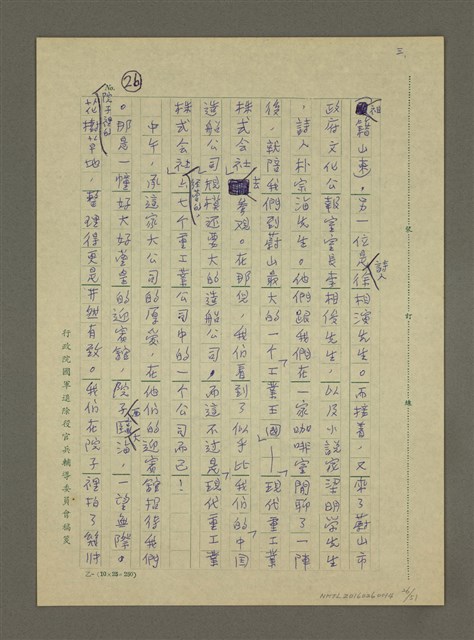 三
26
祖籍山東，另一位是詩人徐相演先生。而接着，又來了蔚山市
政府文化公報室室長李相俊先生，以及小說家望明学先生
，詩人朴宗海先生。他們跟我們在一家咖啡室閒聊了一陣
後，就陪我們到蔚山最大的一个「工業王國」—「現代重工業
株式会社」去參观。在那兒，我们看到了似乎比我们的中国
造船公司規模还要大的造船公司，而這不过是「現代重工業
株式会社」經營的七个重工業公司中的一个公司而已！
中午，承這家大公司的厚爱，在他们的迎賓館招待我們
。那是一幢好大好堂皇的迎賓館，院子面大臨海，一望無際。
No院子裡的花樹草地，整理得更是井然有致。我们在院子裡拍了幾

裝 訂 線
行政院國軍退除役官兵輔導委員會稿箋
乙-(10×25=250)
NMTL20160260014
26/21